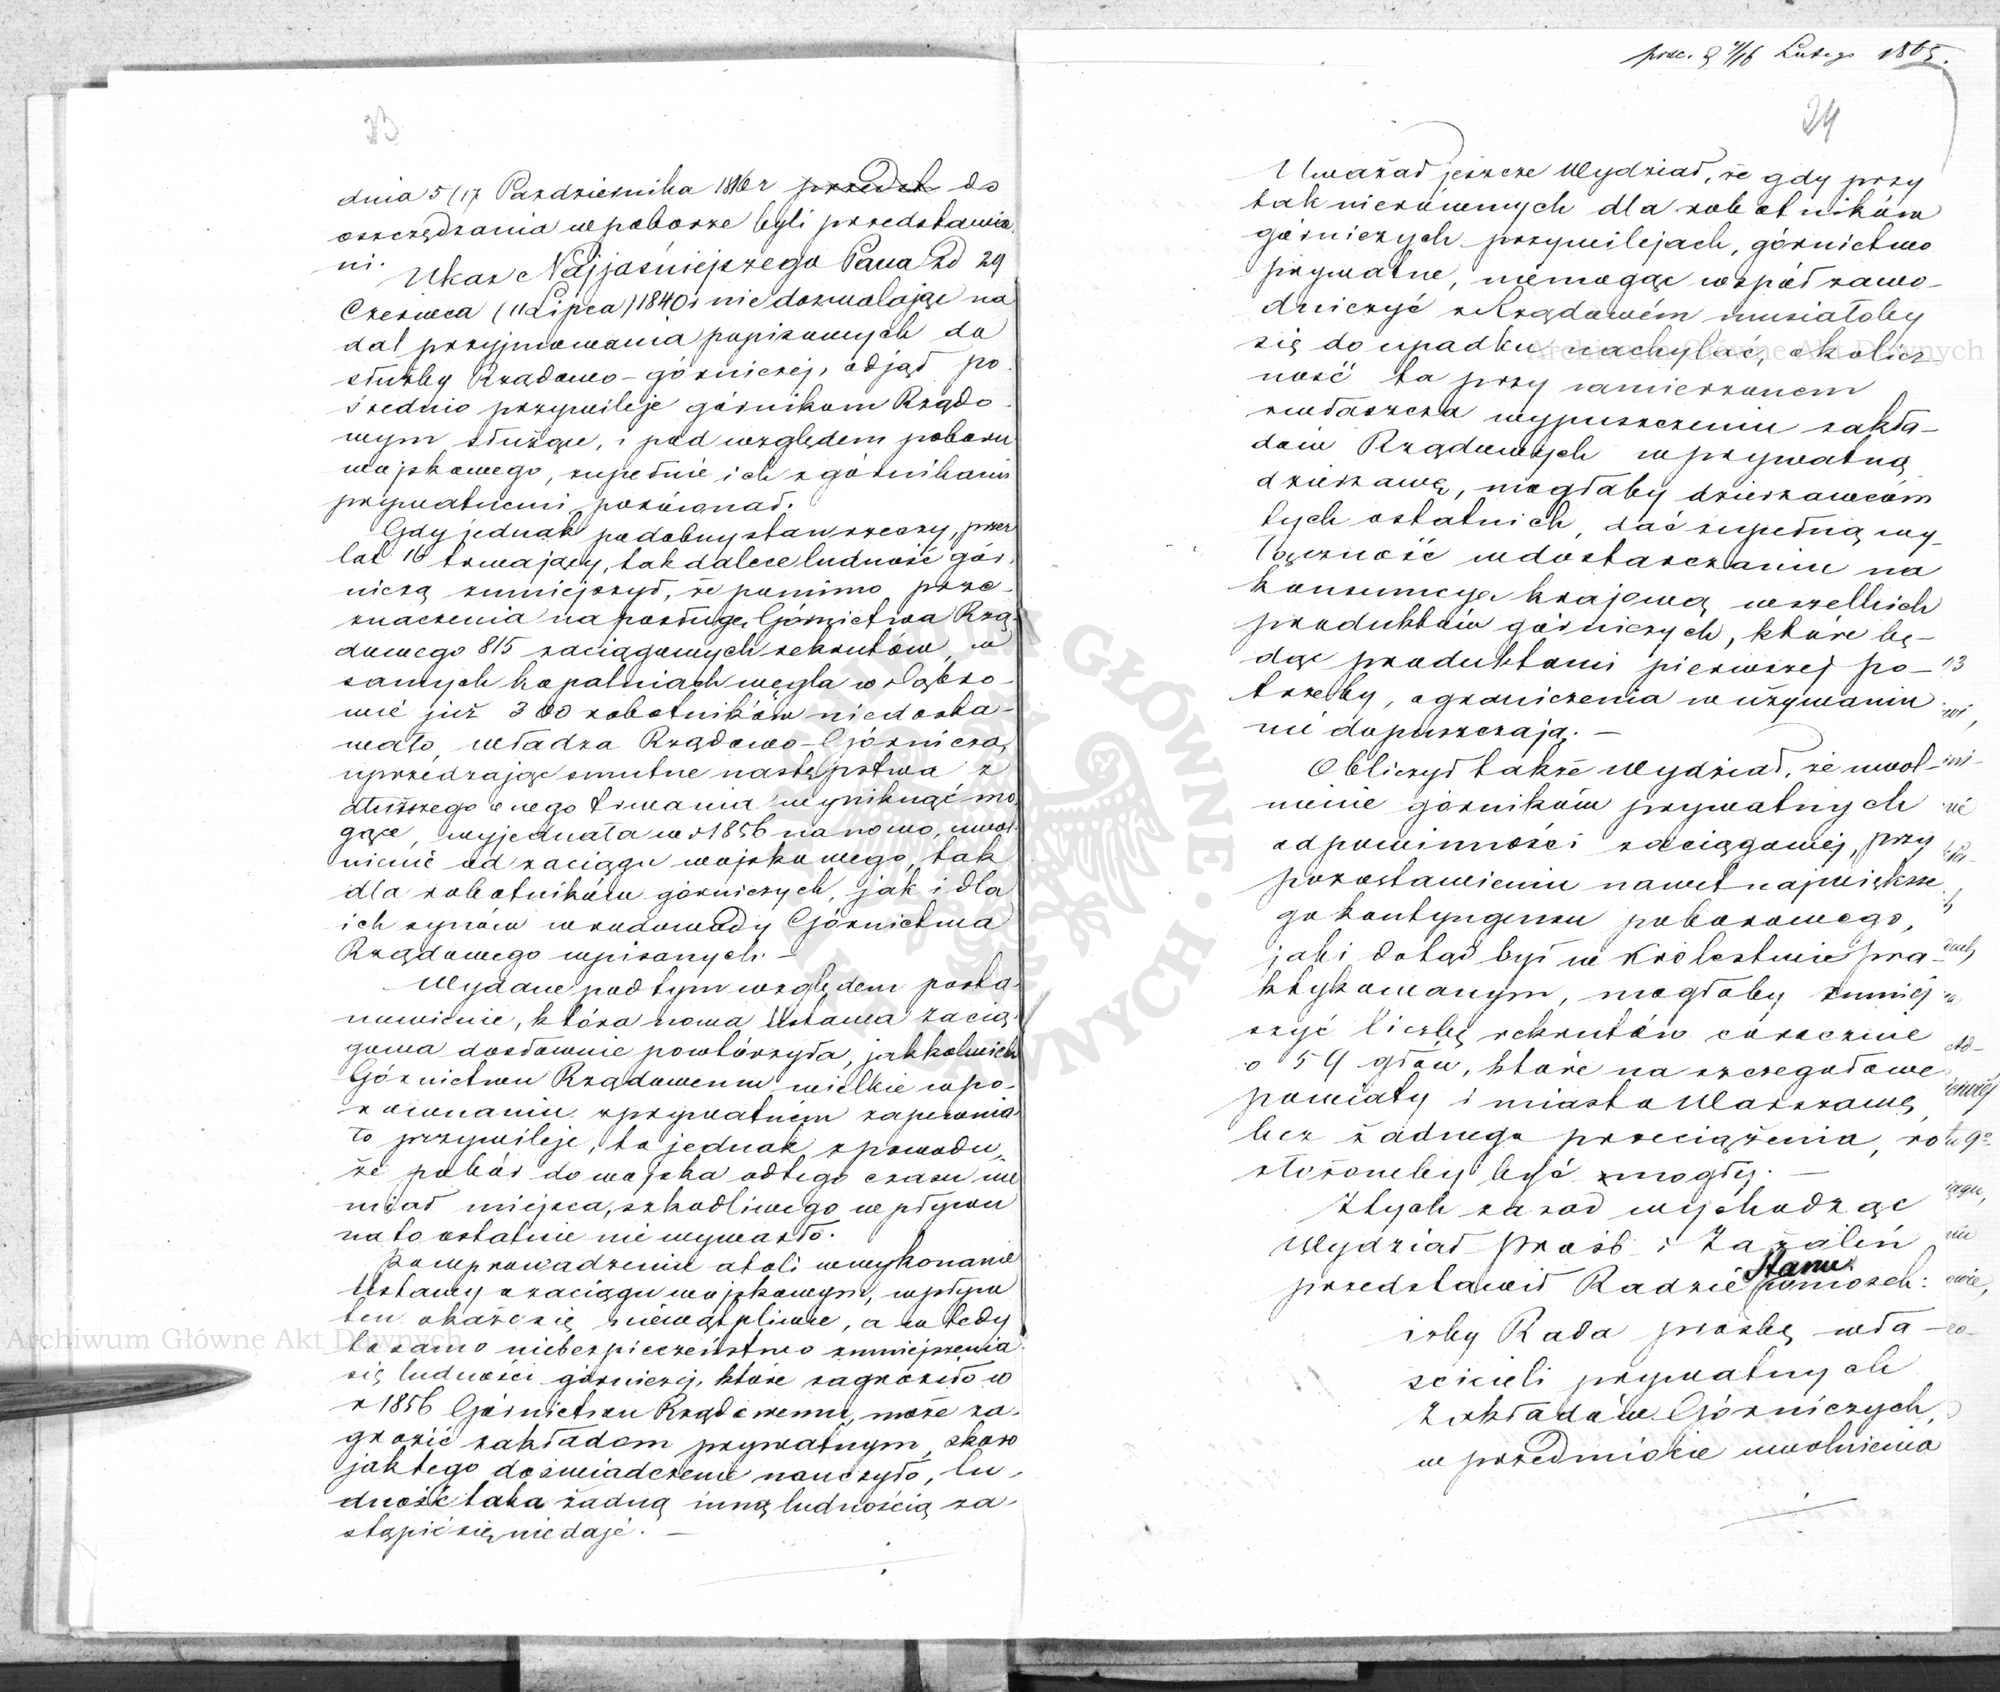 33
dnia 5/17 Pazdziernika 1816 r przedst do
oszczędzania w poborze byli przedstawia
ni.
Ukaz Najjaśniejszego Pana zd 29
Czerwca (11 Lipca) 1840 r nie dozwalając na
dal przyjmowania popisowych do
służby Rządowo-górniczej, odjął po
średnio przywileje górnikom Rządo
wym służące, i pod względem poboru
wojskowego, zupełnie ich z górnikami
prywatnemi porównał.
Gdy jednak podobny stan rzeczy, przez
lat 16 trwający, tak dalece ludność gór
niczą zmniejszył, że pomimo prze
znaczenia na posługę Górnictwa Rzą
dowego 815 zaciągowych rekrutów, w
samych kopalniach węgla w Dąbro
wie już 300 robotników niedosta-
wało, władza Rządowo-Górnicza,
uprzedzając smutne następstwa z
dłuższego onego trwania wyniknąć mo
gące, wyjednała w r 1856 na nowo, uwol
nienie od zaciągu wojskowego, tak
dla robotników górniczych, jak i dla
ich synów w rodowody Górnictwa
Rządowego wpisanych. -
Wydane pod tym względem posta
nowienie, które nowa Ustawa zacią
gowa dosłownie powtórzyła, jakkolwiek
Górnictwu Rządowemu wielkie w po-
równaniu z prywatném zapewnia
ło przywileje, to jednak z powodu,
że pobór do wojska od tego czasu nie
miał miejsca, szkodliwego wpływu
na to ostatnie nie wywarło.
Po wprowadzeniu atoli w wykonanie
Ustawy o zaciągu wojskowym, wpływ
ten okaże się niewątpliwie, a wtedy
to samo niebezpieczeństwo zmniejszenia
się ludności górniczej, które zagroziło w
r 1856 Górnictwu Rządowemu, może za-
grozić zakładom prywatnym, skoro
jak tego doświadczenie nauczyło, lu-
dność taka żadną inną ludnością za-
stąpić się nie daje. -
prze. d 4/16 Lutego 1865.
34
Uważał jeszcze Wydział, że gdy przy
tak nierównych dla robotników
górniczych przywilejach, górnictwo
prywatne, niemogąc współzawo-
dniczyć z Rządowém musiałoby
się do upadku nachylać, okolicz-
ność ta przy zamierzonem
zwłaszcza wypuszczeniu zakła-
dów Rządowych w prywatną
dzierżawę, mogłaby dzierżawcom
tych ostatnich, dać zupełną wy-
łączność w dostarczaniu na
konsumcyę krajową wszelkich
produktów górniczych, które bę-
dąc produktami pierwszej po-
trzeby, ograniczenia w używaniu
nie dopuszczają. -
Obliczył także Wydział, że uwol-
nienie górników prywatnych
od powinności zaciągowej, przy
pozostawieniu nawet największe
go kontyngensu poborowego,
jaki dotąd był w Królestwie pra-
ktykowanym, mogłoby zmniej
szyć liczbę rekrutów corocznie
o 59 głów, które na szczegółowe
powiaty i miasto Warszawę,
bez żadnego przeciążenia, roz
łożoneby być mogły. -
Z tych zasad wychodząc
Wydział Próśb i Zażaleń
przedstawił Radzie Stanu wniosek:
iżby Rada prośbę wła-
ścicieli prywatnych
Zakładów Górniczych,
w przedmiocie uwolnienia
Archiwum Główne Akt Dawnych
Archiwum Główne Akt Dawnych